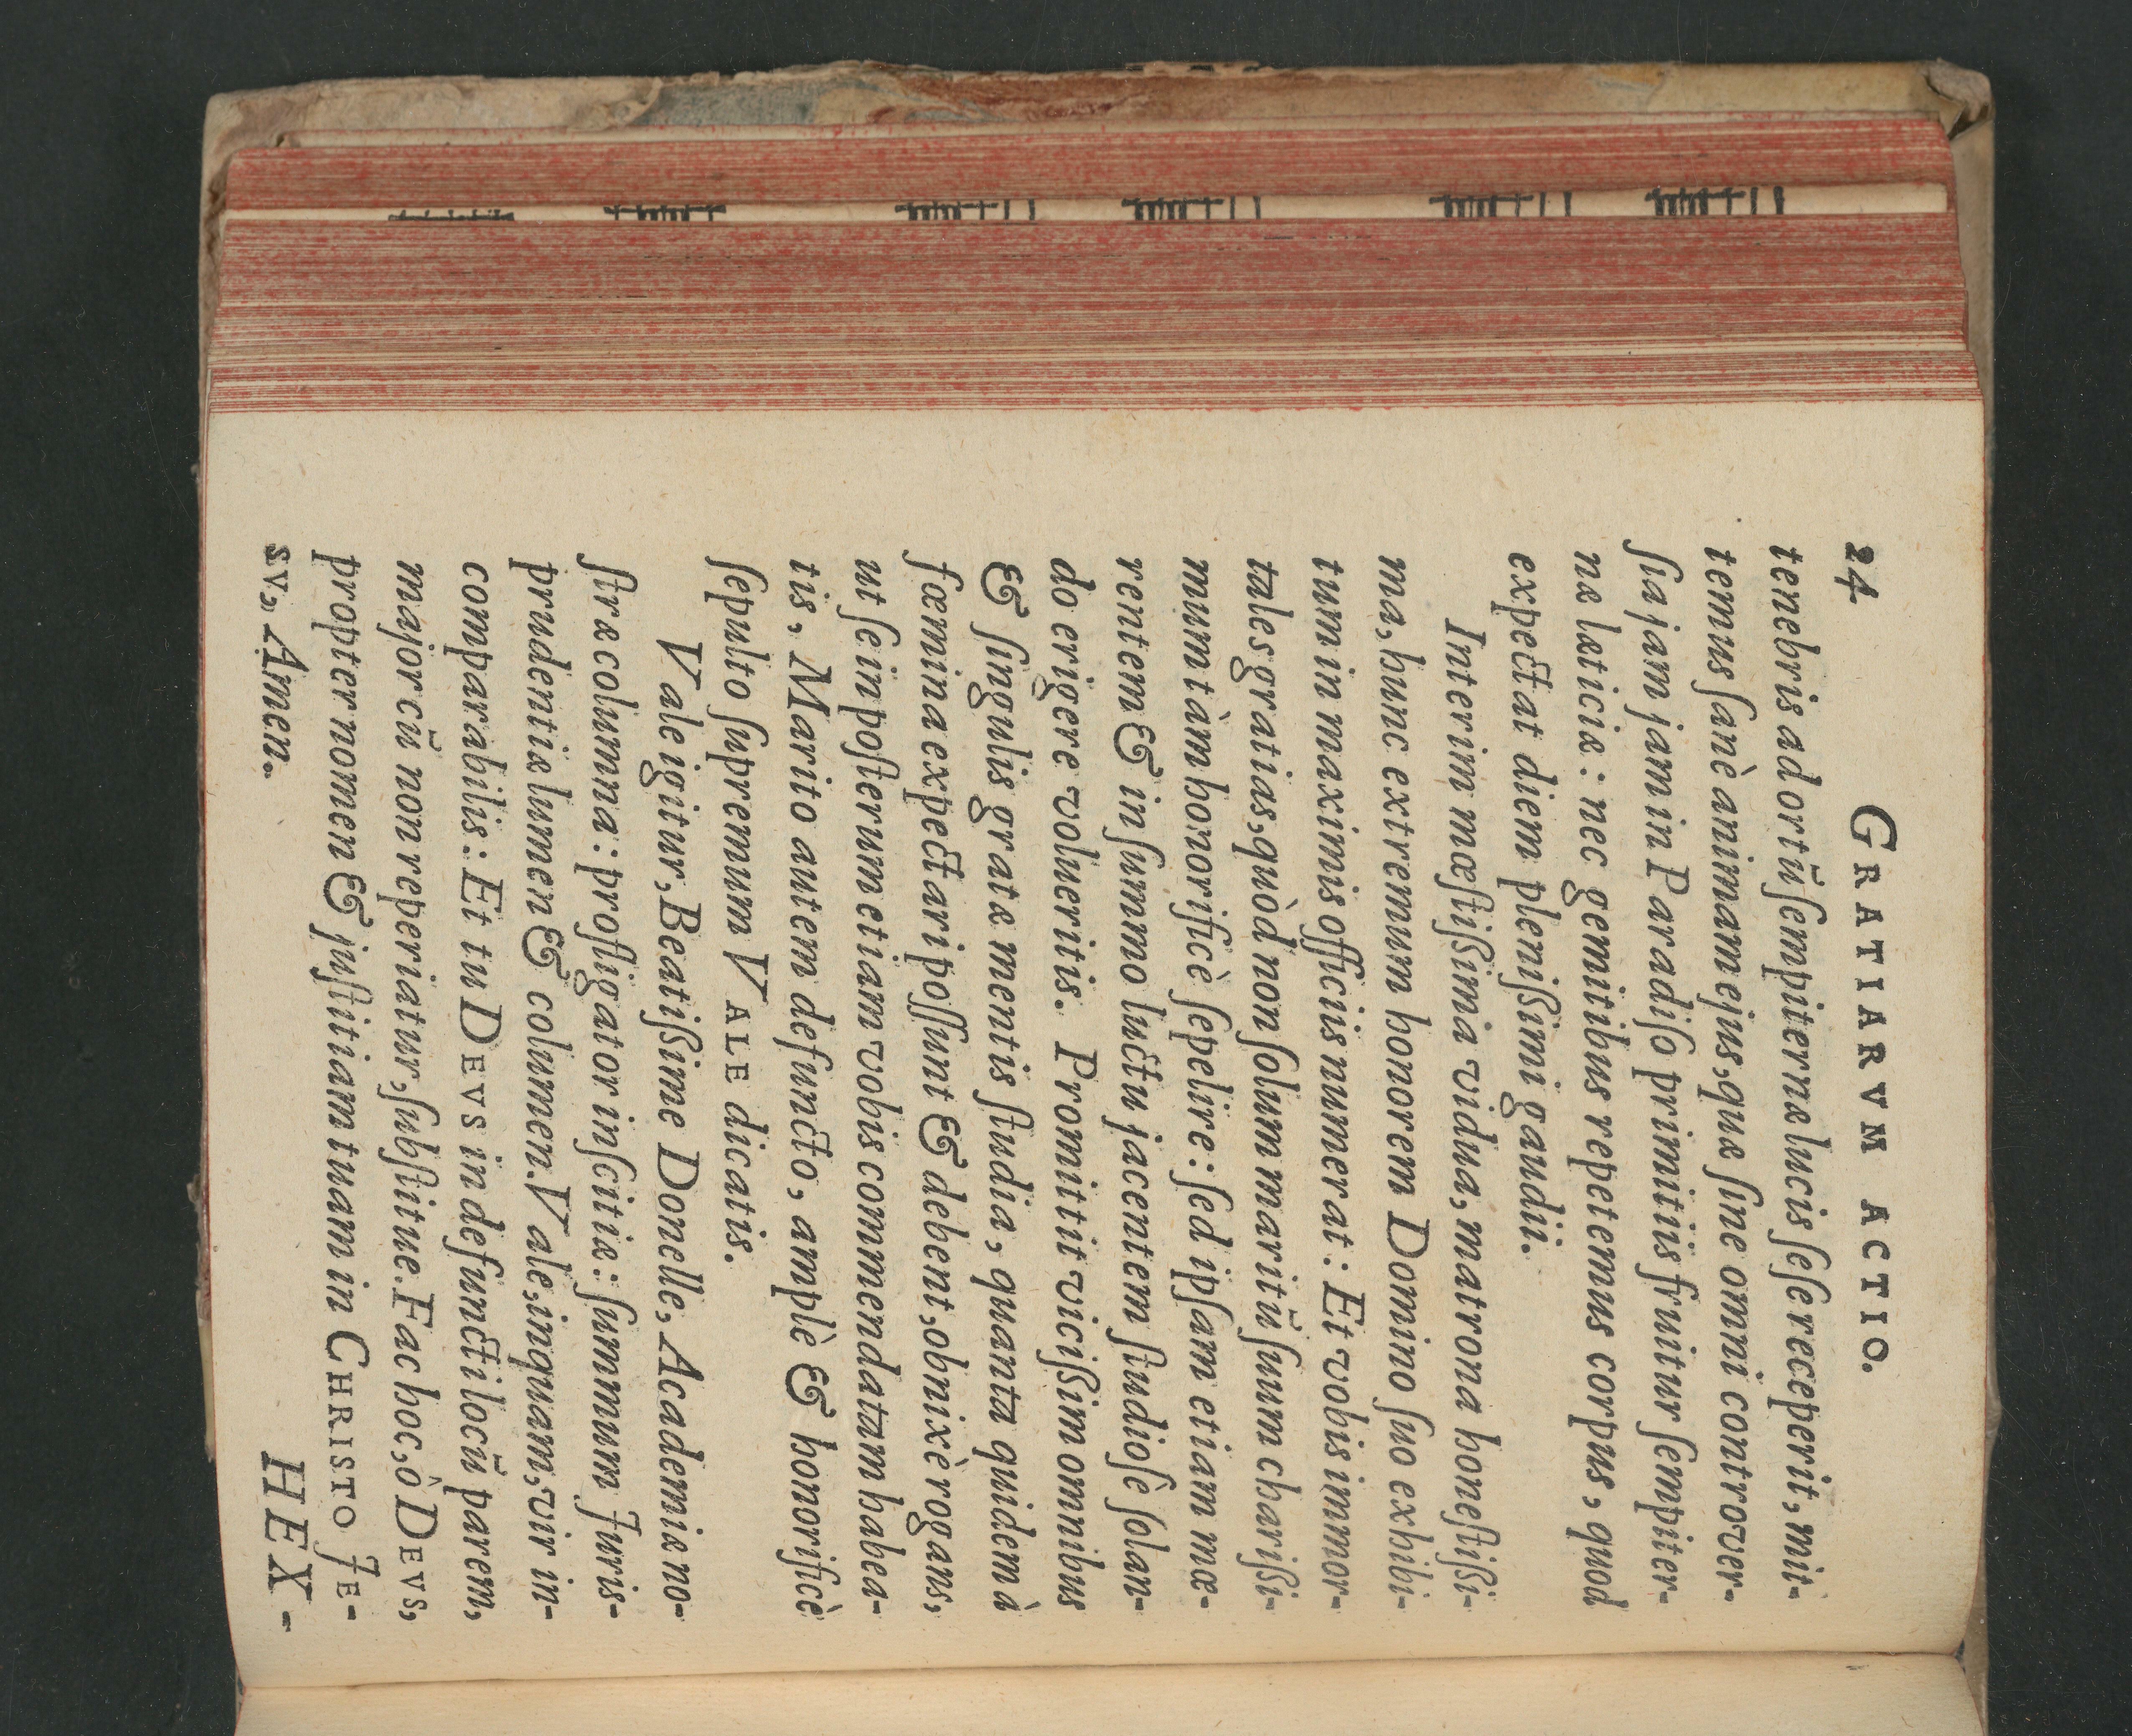 24 GRATIARVM ACTIO.
tenebris ad ortũ ſempiternæ lucis ſeſe receperit, mit-
temus ſanè animam ejus, quæ ſine omni controver-
ſia jam jam in Paradiſo primitiis fruitur ſempiter-
næ læticiæ: nec gemitibus repetemus corpus, quod
expectat diem pleniſsimi gaudii.
Interim mœſtiſsima vidua, matrona honeſtiſsi-
ma, hunc extremum honorem Domino ſuo exhibi-
tum in maximis officiis numerat: Et vobis immor-
tales gratias, quòd non ſolum maritũ ſuum chariſsi-
mum tàm honorificè ſepelire: ſed ipſam etiam mœ-
rentem & in ſummo luctu jacentem ſtudioſè ſolan-
do erigere volueritis. Promittit viciſsim omnibus
& ſingulis gratæ mentis ſtudia, quanta quidem à
fœmina expectari poſſunt & debent, obnixè rogans,
ut ſe in poſterum etiam vobis commendatam habea-
tis, Marito autem defuncto, amplè & honorificè
ſepulto ſupremum VALE dicatis.
Vale igitur, Beatiſsime Donelle, Academiæ no-
ſtræ columna: profligator inſcitiæ: ſummum Juris-
prudentiæ lumen & columen. Vale, inquam, vir in-
comparabilis: Et tu DEVS in defuncti locũ parem,
major cũ non reperiatur, ſubſtitue. Fac hoc, ò DEVS,
propter nomen & juſtitiam tuam in CHRISTO JE-
SV, Amen.
HEX-